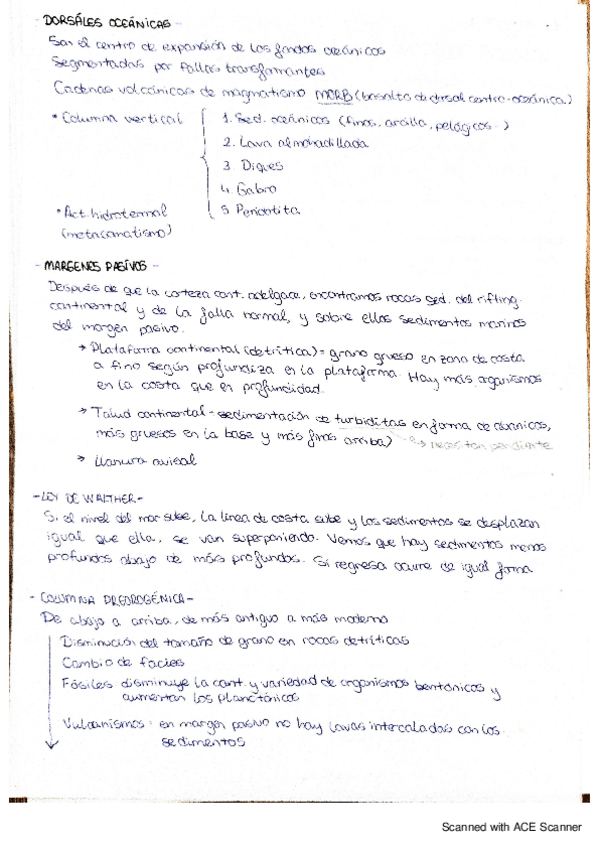 - DORSÁLES OCEÁNICAS -
Son el centro de expansión de los fondos oceánicos
Segmentadas por fallas transformantes
Cadenas volcánicas de magmatismo MORB (basalto de dorsal centro-oceánica)
• Columna vertical
1. Sed. oceánicos (finos, arcilla, pelágicos..)
2. Lava almohadillada
3. Diques
4. Gabro
5. Peridotita
• Act. hidrotermal
(metasomatismo)
- MARGENES PASIVOS -
Después de que la corteza cont. adelgace, encontramos rocas sed. del rifting
continental y de la falla normal, y sobre ellos sedimentos marinos
del margen pasivo.
→ Plataforma continental (detrítica) = grano grueso en zona de costa
a fino según profundiza en la plataforma. Hay más organismos
en la costa que en profundidad.
→ Talud continental = sedimentación de turbiditas en forma de abanicos,
más gruesos en la base y más finos arriba) → necesitan pendiente
→ llanura avisal
- LEY DE WALTHER -
Si el nivel del mar sube, la línea de costa sube y los sedimentos se desplazan
igual que ella, se van superponiendo. Vemos que hay sedimentos menos
profundos abajo de más profundos. Si regresa ocurre de igual forma
- COLUMNA PREOROGÉNICA -
De abajo a arriba, de más antiguo a más moderno
Disminución del tamaño de grano en rocas detríticas
Cambio de facies
Fósiles disminuye la cant. y variedad de organismos bentónicos y
aumentan los planctónicos
Vulcanismos: en margen pasivo no hay lavas intercaladas con los
sedimentos
Scanned with ACE Scanner